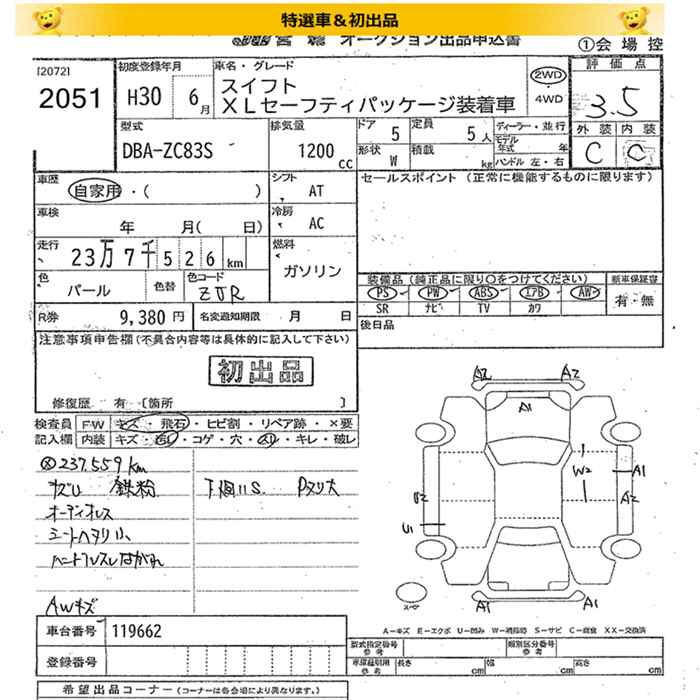 特選車&初出品
オークション出品申込書
①会 場 控
[2072]
2051
初度登録年月
H30 6月
車名・グレード
スイフト
XLセーフティパッケージ装着車
2WD
4WD
評 価 点
3.5
外 装 内 装
C C
型式
DBA-ZC83S
排気量
1200 cc
ドア 5
定員 5人
形状 W
積載 kg
ディーラー・並行
モデル年式 年
ハンドル 左・右
車歴
自家用・( )
シフト AT
車検
年 月( 日)
冷房 AC
走行
23万7千526km
燃料
ガソリン
色
パール
色替
色コード
ZJR
R券 9,380円
名変通知期限 月 日
セールスポイント (正常に機能するものに限ります)
装備品 (純正品に限り○をつけてください)
新車保証書
PS PW ABS エアB AW
有・無
SR ナビ TV カワ
後日品
注意事項申告欄(不具合内容等は具体的に記入して下さい)
初出品
修復歴 有 〔箇所 〕
検査員記入欄
FW キズ・飛石・ヒビ割・リペア跡・×要
内装 キズ・汚レ・コゲ・穴・スレ・キレ・破レ
237.559km
鉄粉
オーディオレス
シートヘタリ小
AWキズ
A2 A2
A1
W2
A1
A2
B2
U1
A1 A1
スペア
A―キズ E―エクボ U―凹み W―補修跡 S―サビ C―腐食 XX―交換済
車台番号 119662
登録番号
型式指定番号 参考
類別区分番号 参考
車庫証明用 参考
長さ cm 幅 cm 高さ cm
希望出品コーナー (コーナーは各会場により異なります。)